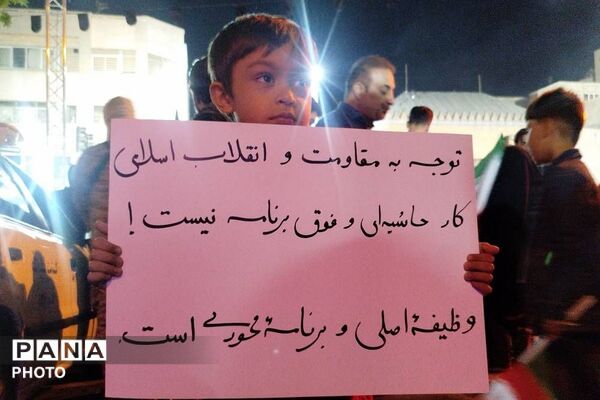 توجه به مقاومت و انقلاب اسلامی
کار حاشیه‌ای و فوق برنامه نیست !
وظیفهٔ اصلی و برنامهٔ محوری است.
PANA
PHOTO